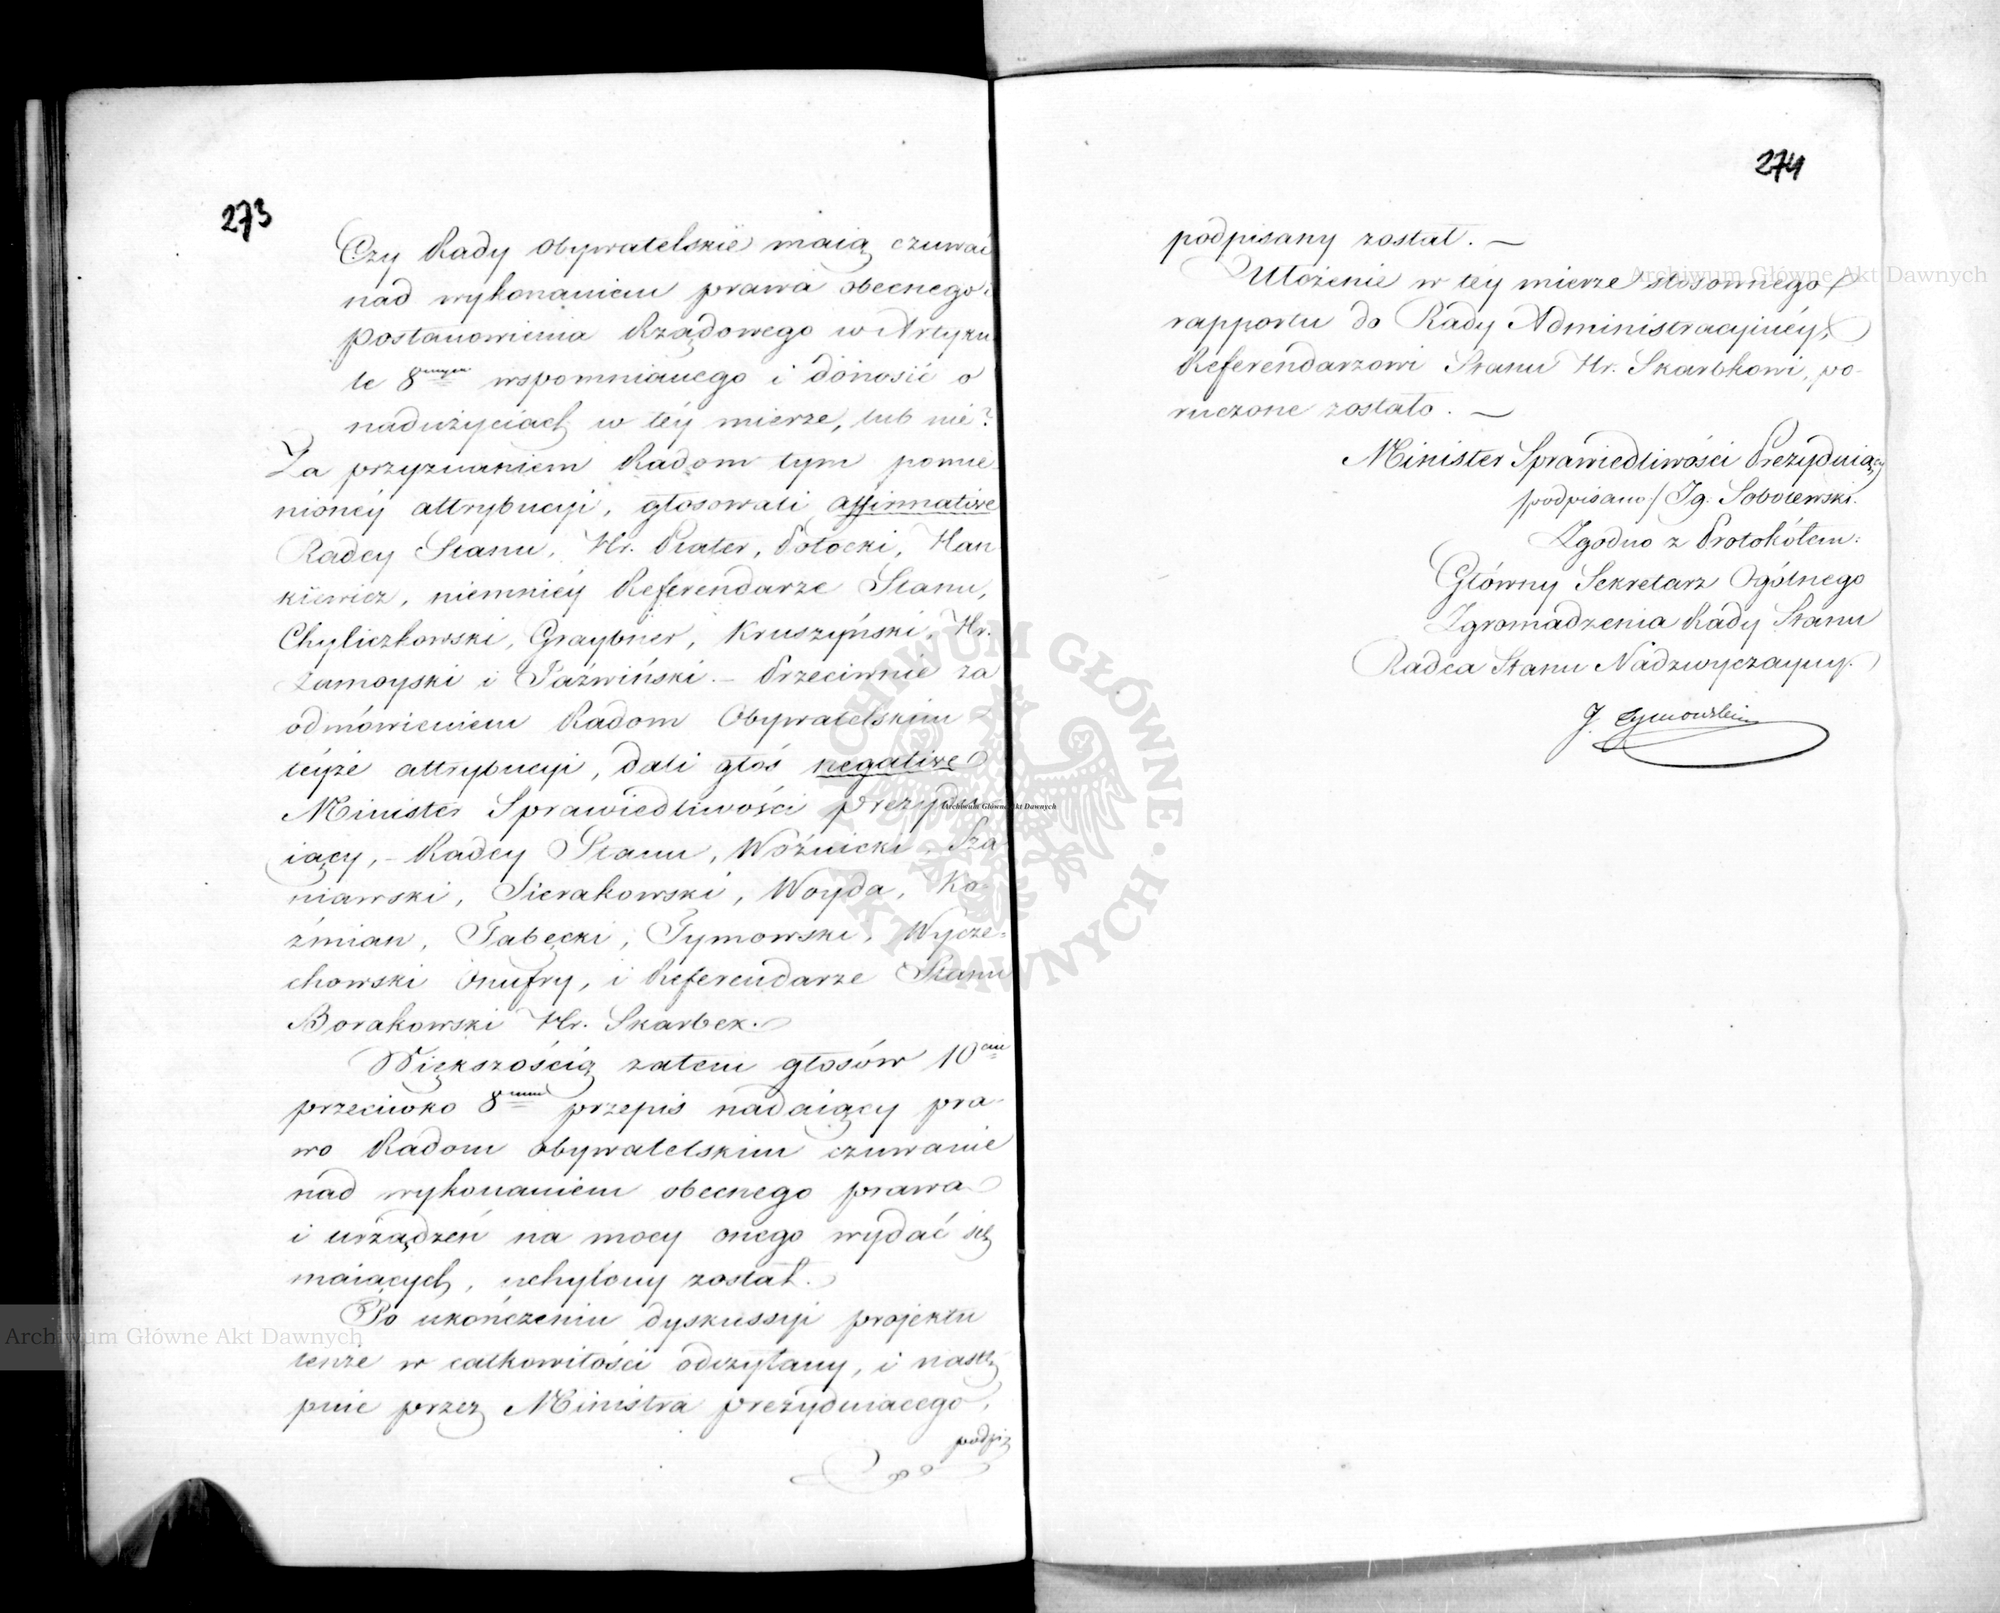 273
Czy Rady Obywatelskie maią czuwać
nad wykonaniem prawa obecnego
postanowienia Rządowego w Artyku
le 8mym wspomnianego i donosić o
nadużyciach w téy mierze, lub nie?
Za przyznaniem Radom tym pomie
nionéy attrybucyi, głosowali affirmative
Radcy Stanu, Hr. Plater, Potocki, Han
kiewicz, niemniéy Referendarze Stanu,
Chyliczkowski, Graybner, Kruszyński, Hr.
Zamoyski i Paźwiński. – Przeciwnie za
odmówieniem Radom Obywatelskim
téyże attrybucyi, dali głos negative
Minister Sprawiedliwości prezydu-
iący, – Radcy Stanu, Woźnicki, Sza
niawski, Sierakowski, Woyda, Ko-
źmian, Tabęcki, Tymowski, Wycze-
chowski Onufry, i Referendarze Stanu
Borakowski Hr. Skarbek.
Większością zatem głosów 10ciu
przeciwko 8miu przepis nadaiący pra-
wo Radom obywatelskim czuwanie
nad wykonaniem obecnego prawa
i urządzeń na mocy onego wydać się
maiących, uchylony został.
Po ukończeniu dyskussyi projektu
tenże w całkowitości odczytany, i nastę
pnie przez Ministra prezyduiacego,
podpi
274
podpisany został. —
Ułożenie w téy mierze stosownego
rapportu do Rady Administracyinéy,
Referendarzowi Stanu Hr. Skarbkowi, po-
ruczone zostało. —
Minister Sprawiedliwości Prezyduiący
/podpisano/ Ig. Sobolewski.
Zgodno z Protokółem:
Główny Sekretarz Ogólnego
Zgromadzenia Rady Stanu
Radca Stanu Nadzwyczayny.
J. Tymowski
Archiwum Główne Akt Dawnych
Archiwum Główne Akt Dawnych
Archiwum Główne Akt Dawnych
ARCHIWUM GŁÓWNE AKT DAWNYCH